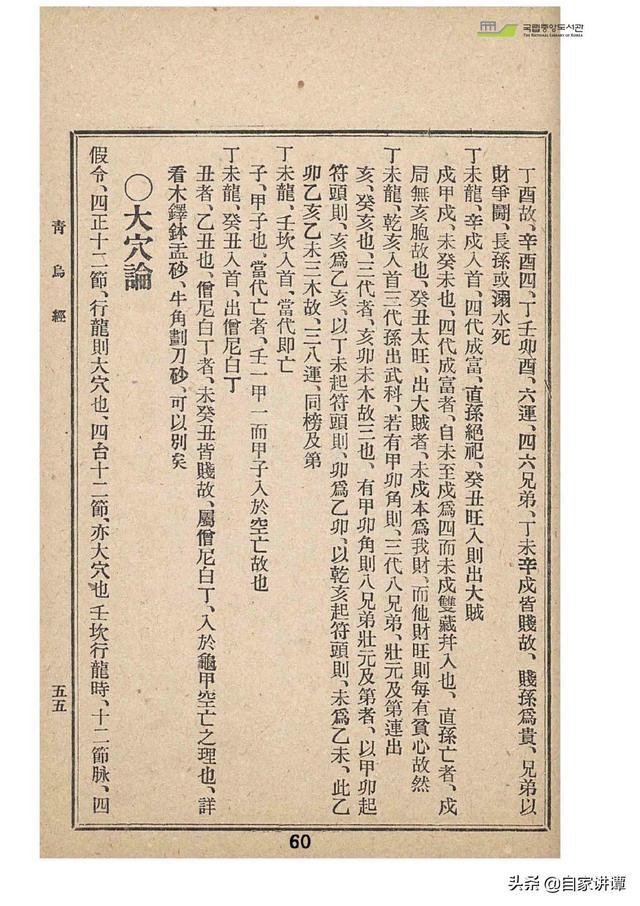 국립중앙도서관
THE NATIONAL LIBRARY OF KOREA
丁酉故、辛酉四、丁壬卯酉、六運、四六兄弟、丁未辛戌皆賤故、賤孫爲貴、兄弟以
財爭鬪、長孫或溺水死
丁未龍、辛戌入首、四代成富、直孫絕祀、癸丑旺入則出大賊
戌甲戌、未癸未也、四代成富者、自未至戌爲四而未戌雙藏幷入也、直孫亡者、戌
局無亥胞故也、癸丑太旺、出大賊者、未戌本爲我財、而他財旺則每有貧心故然
丁未龍、乾亥入首三代孫出武科、若有甲卯角則、三代八兄弟、壯元及第連出
亥、癸亥也、三代者、亥卯未木故三也、有甲卯角則八兄弟壯元及第者、以甲卯起
符頭則、亥爲乙亥、以丁未起符頭則、卯爲乙卯、以乾亥起符頭則、未爲乙未、此乙
卯乙亥乙未三木故、三八運、同榜及第
丁未龍、壬坎入首、當代即亡
子、甲子也、當代亡者、壬一甲一而甲子入於空亡故也
丁未龍、癸丑入首、出僧尼白丁
丑者、乙丑也、僧尼白丁者、未癸丑皆賤故、屬僧尼白丁、入於龜甲空亡之理也、詳
看木鐸鉢盂砂、牛角劃刀砂、可以別矣
〇大穴論
假令、四正十二節、行龍則大穴也、四台十二節、亦大穴也 壬坎行龍時、十二節脉、四
靑烏經
五五
60
头条 @自家讲谭